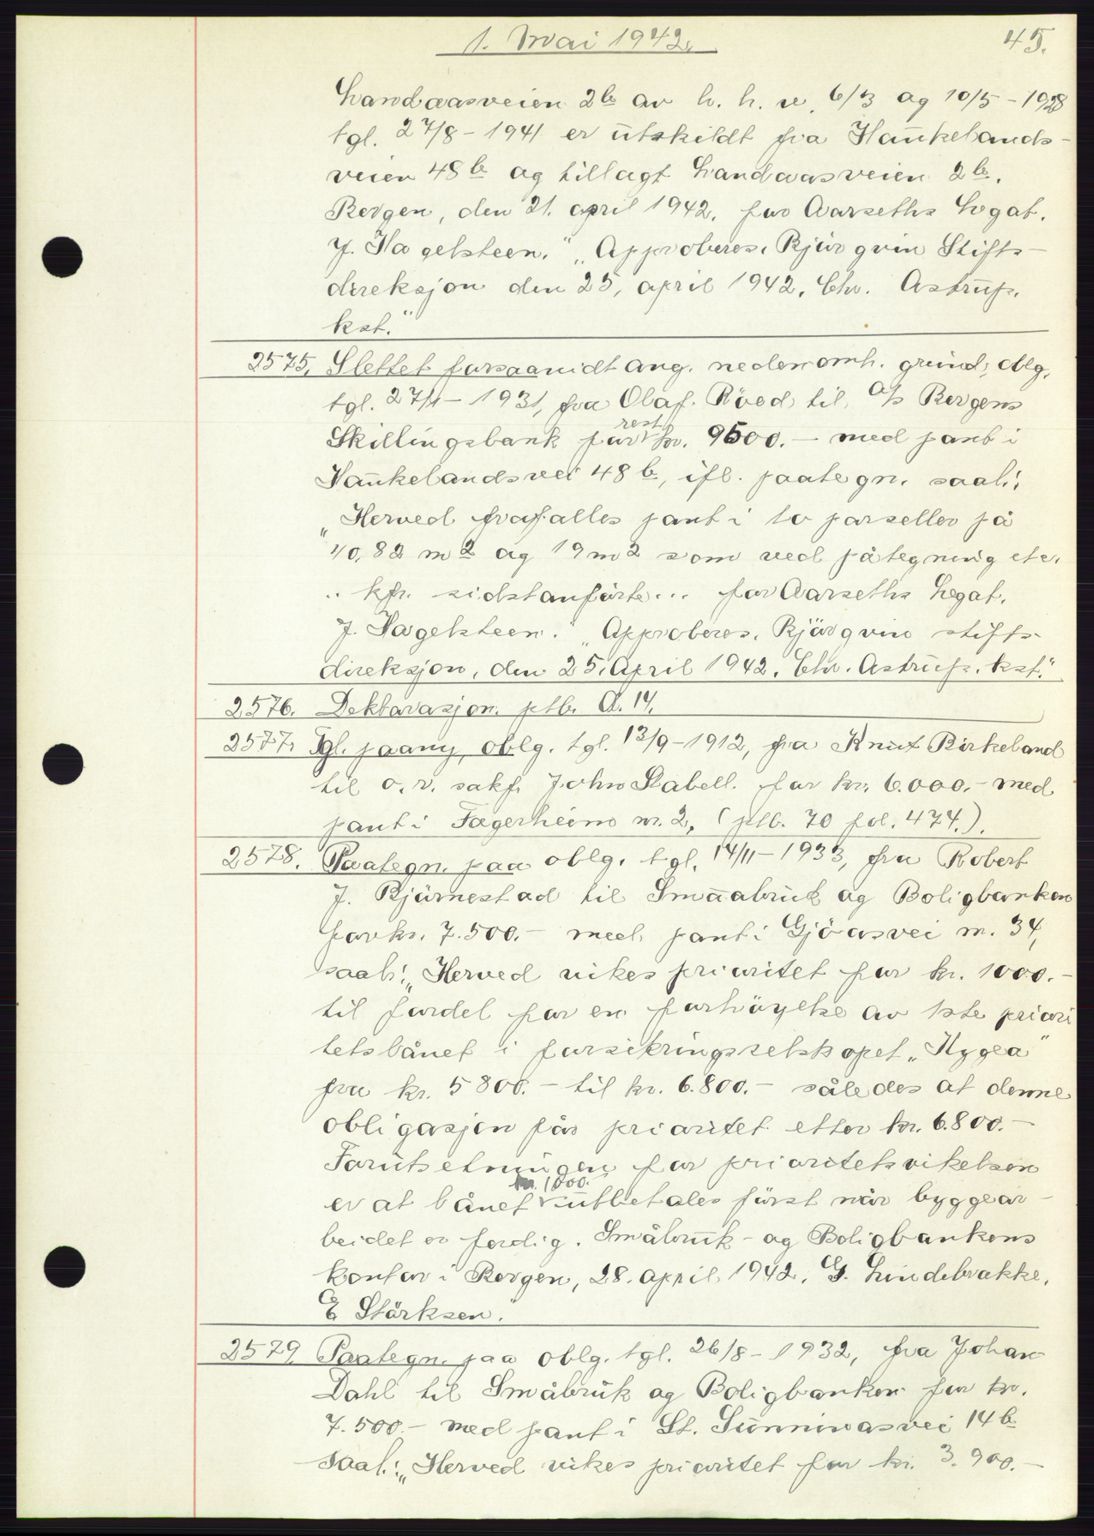 1. Mai 1942.
45.
Landaasveien 2b av h. h. v. 6/3 og 10/5 - 1928
tgl. 27/8 - 1941 er utskildt fra Haukelands-
veien 48 b og tillagt Landaasveien 2b.
Bergen, den 21. april 1942. for Aarseths Legat.
J. Hagelsteen." "Approberes. Bjørgvin Stifts-
direksjon den 25. april 1942. Chr. Astrup.
kst."
2575. Slettet forsaavidt ang. nedenomh. grund, oblg.
tgl. 27/1 - 1931, fra Olaf Røed til A/s Bergens
Skillingsbank for rest kr. 9500.- med pant i
Haukelandsvei 48 b, ifl. paategn. saal.:
"Herved frafalles pant i to parseller på
40,82 m2 og 19 m2 som ved påtegning etc.
.. kfr. sidstanførte... for Aarseths Legat.
J. Hagelsteen." "Approberes. Bjørgvin stifts-
direksjon, den 25. April 1942. Chr. Astrup. kst."
2576. Deklarasjon. ptb. A. 14.
2577. Tgl. paany, oblg. tgl. 13/9 - 1912, fra Knut Birkeland
til o.r. sakf. John Stabell for kr. 6.000.- med
pant i Fagerheim nr. 2, (ptb. 70 fol. 474.).
2578. Paategn. paa oblg. tgl. 14/11 - 1933, fra Robert
J. Bjørnestad til Småabruk og Boligbanken
for kr. 7.500.- med pant i Gjøasvei nr. 34,
saal.: "Herved vikes prioritet for kr. 1000.-
til fordel for en forhøyelse av 1ste priori
tetslånet i forsikringsselskapet "Hygea"
fra kr. 5800.- til kr. 6.800.- således at denne
obligasjon får prioritet etter kr. 6.800.-
Forutsetningen for prioritetsvikelsen
er at lånet kr. 1000. utbetales først når byggear-
beidet er ferdig. Småbruk- og Boligbankens
kontor i Bergen, 28. april 1942. G. Lindebrække.
E Størksen."
2579 Paategn. paa oblg. tgl. 26/8 - 1932, fra Johan
Dahl til Småbruk og Boligbanken for kr.
7.500.- med pant i St. Sunnivasvei 14 b
saal.: "Herved vikes prioritet for kr. 3.900.-